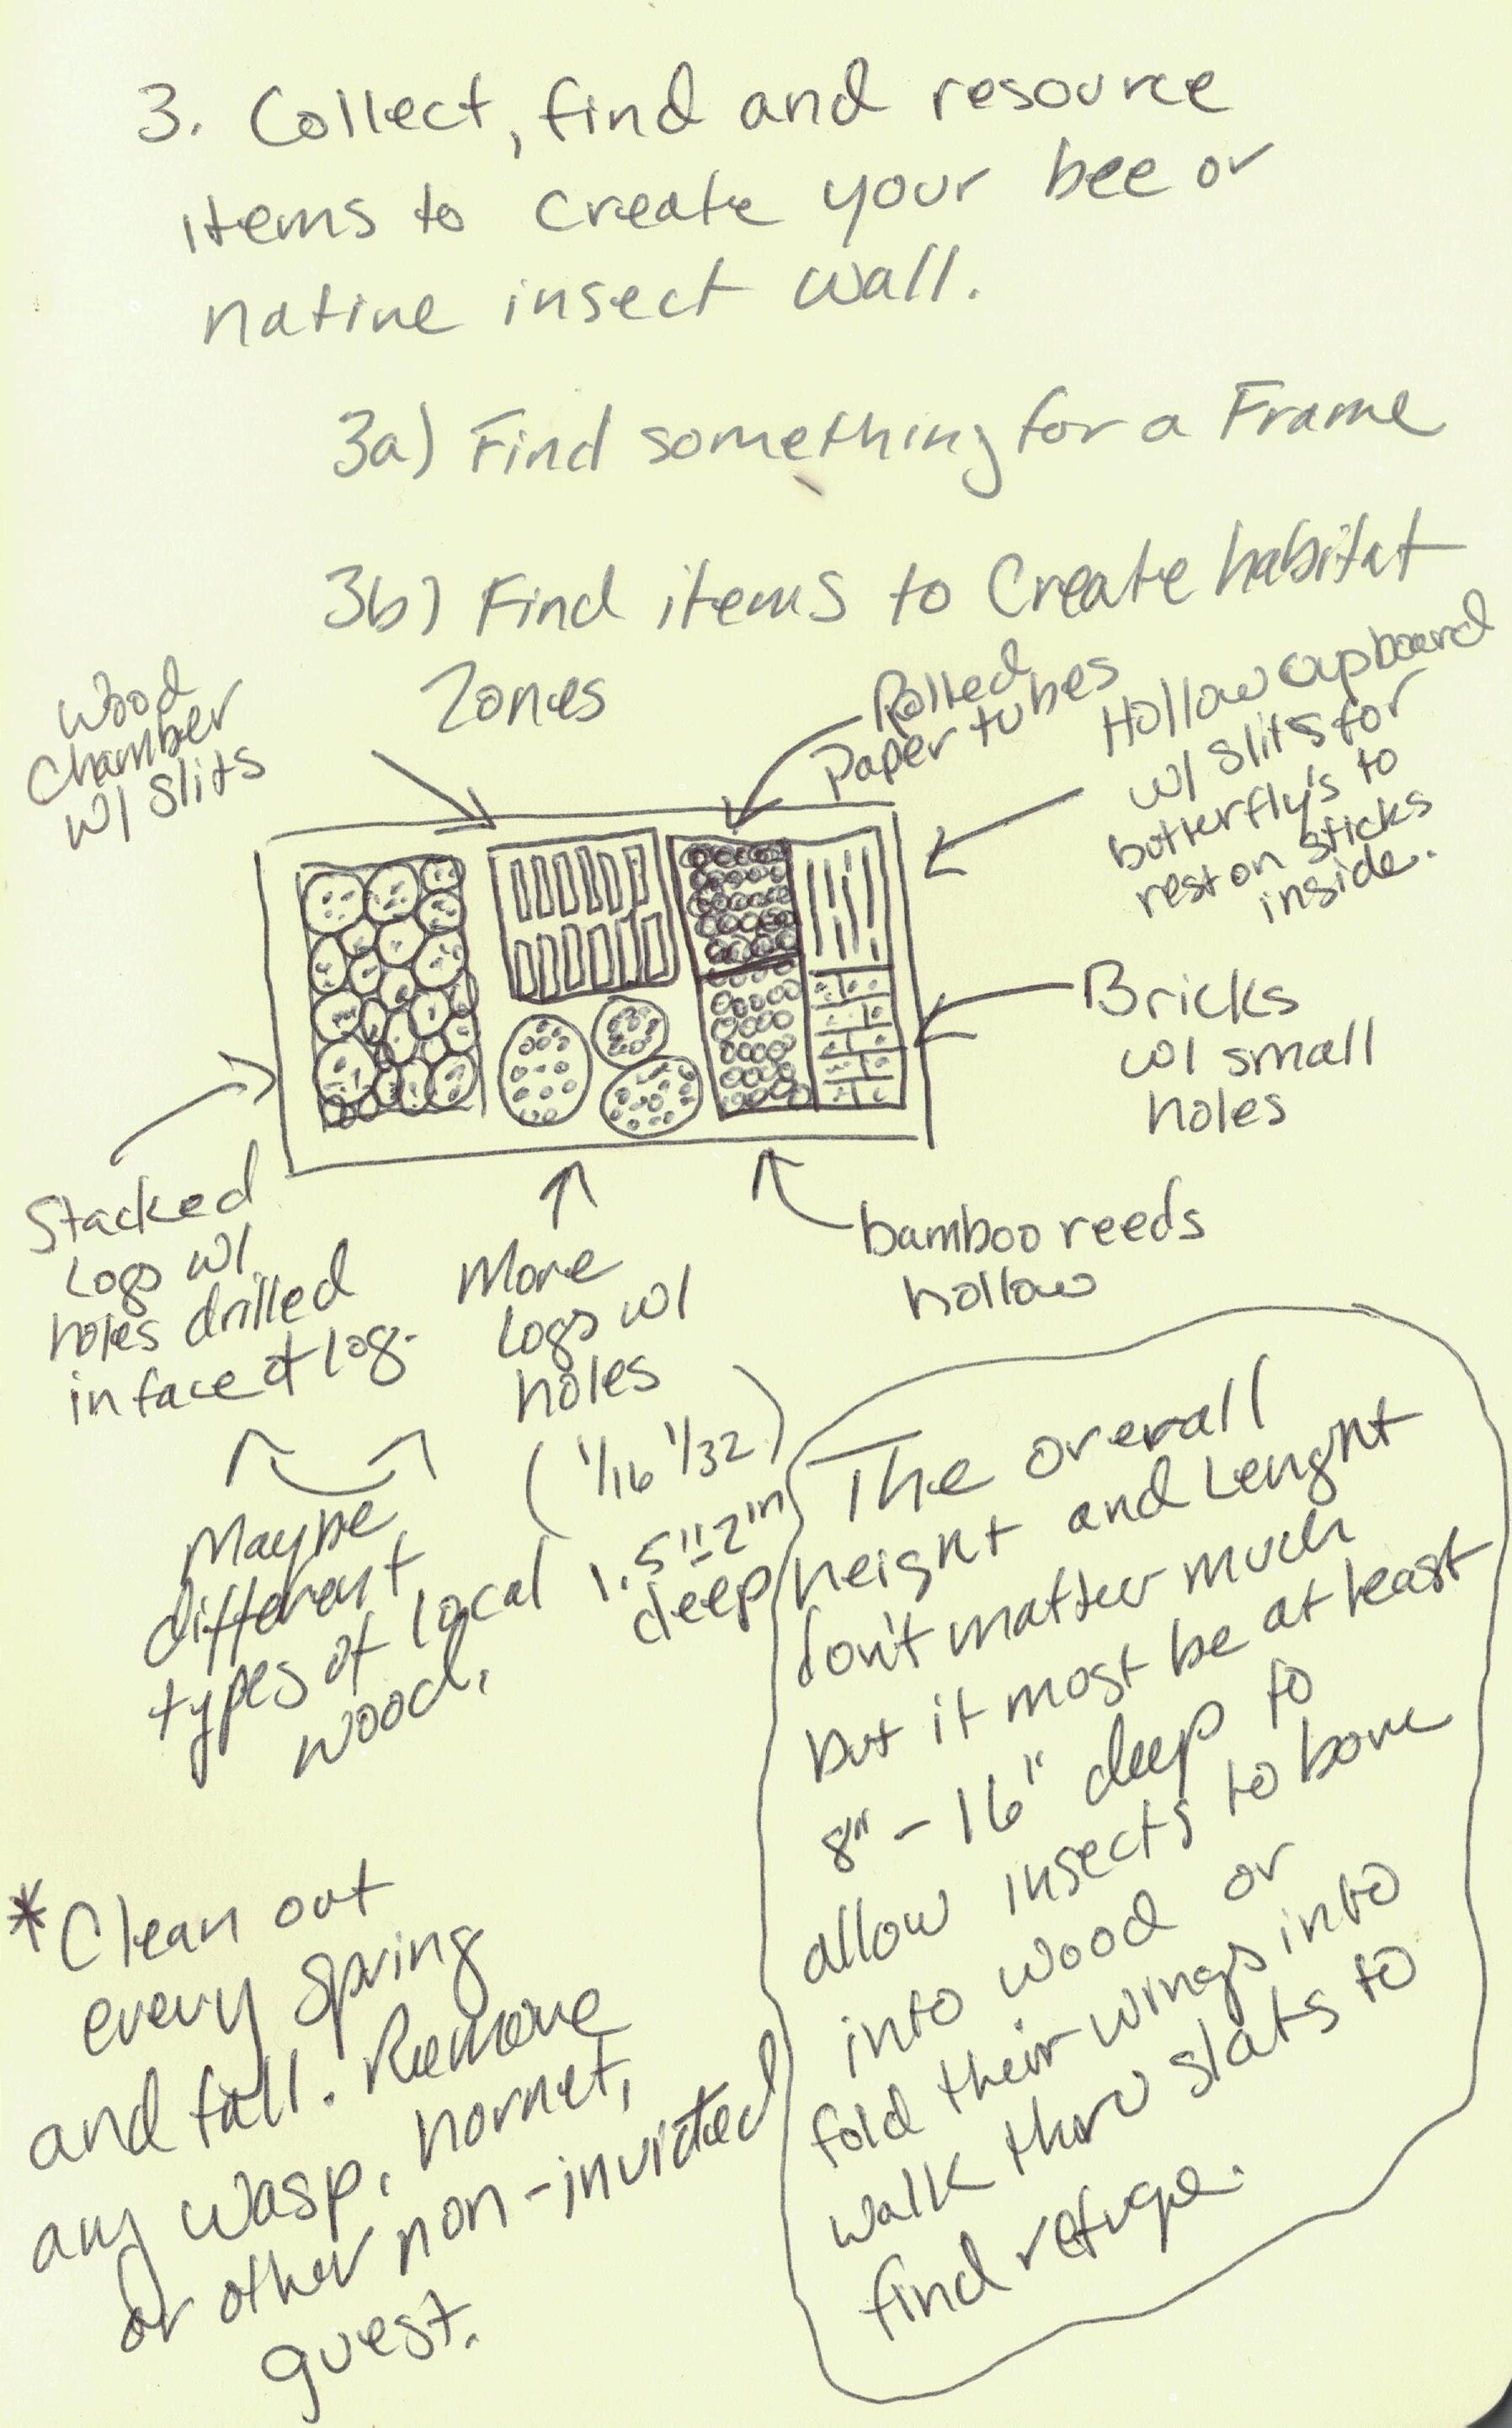 3. Collect, find and resource
items to create your bee or
native insect wall.
3a) Find something for a Frame
3b) Find items to Create habitat
Zones
Wood
Chamber
w/ slits
Rolled
Paper tubes
Hollow cupboard
w/ slits for
butterfly's to
rest on sticks
inside.
Bricks
w/ small
holes
Stacked
Logs w/
holes drilled
in face of log.
More
Logs w/
holes
(1/16 1/32)
1.5"-2" in
deep
bamboo reeds
hollow
Maybe
different
types of local
wood.
The overall
height and Lenght
don't matter much
but it most be at least
8" - 16" deep to
allow insects to bore
into wood or
fold their wings into
walk thru slats to
find refuge.
*Clean out
every spring
and fall. Remove
any wasp, hornet,
or other non-invicted
guest.